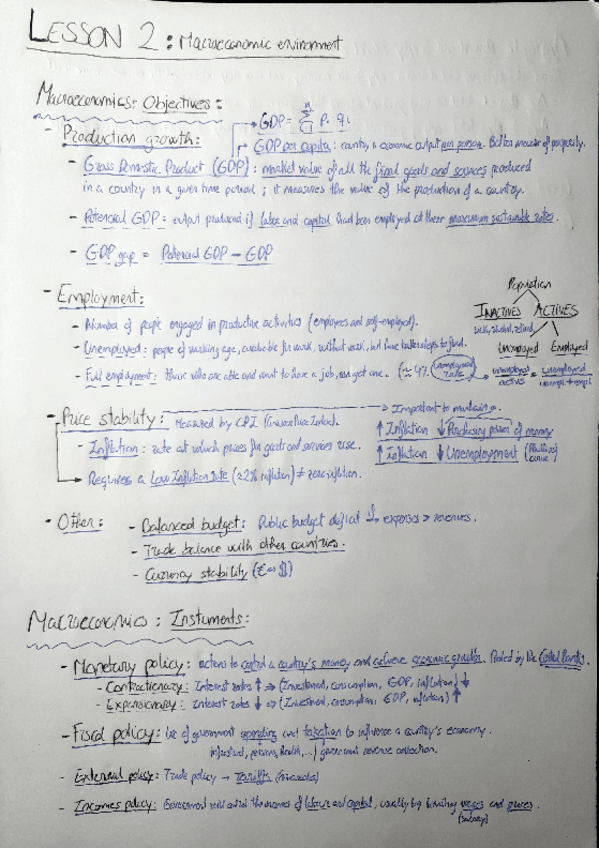 LESSON 2 : Macroeconomic environment
Macroeconomics: Objectives:
- Production growth:
GDP = Σ Pi · qi
n
GDP per capita: country's economic output per person. Better measure of prosperity.
- Gross Domestic Product (GDP): market value of all the final goods and services produced
in a country in a given time period; it measures the value of the production of a country.
- Potencial GDP: output produced if labor and capital had been employed at their maximum sustainable rates.
- GDP gap = Potencial GDP - GDP
- Employment:
- Number of people engaged in productive activities (employees and self-employed).
- Unemployed: people of working age, available for work, without work, but have taken steps to find.
- Full employment: those who are able and want to have a job, can get one. (≈ 4% unemployment rate)
Population
INACTIVES ACTIVES
sick, student, retired
Unemployed Employed
unemployed / actives = unemployed / unempl + empl
- Price stability: Measured by CPI (Consumer Price Index).
→ Important to maintain.
- Inflation: rate at which prices for goods and services rise.
↑ Inflation ↓ Purchasing power of money
↑ Inflation ↓ Unemployment (Phillips curve)
→ Requires a Low Inflation rate (≈2% inflation) ≠ zero inflation.
- Other: - Balanced budget: Public budget deficit if expenses > revenues.
- Trade balance with other countries.
- Currency stability (€ ↔ $)
Macroeconomics: Instuments:
- Monetary policy: actions to control a country's money and achieve economic growth. Proted by the Central Banks.
- Contractionary: Interest rates ↑ ⇒ (Investment, consumption, GDP, inflation) ↓
- Expansionary: Interest rates ↓ ⇒ (Investment, consumption, GDP, inflation) ↑
- Fiscal policy: Use of government spending and taxation to influence a country's economy.
infrastruct, pensions, health, ...) government revenue collection.
- External policy: Trade policy → Tariffs
- Incomes policy: Government will control the incomes of labour and capital, usually by limiting wages and prices.
(salary)